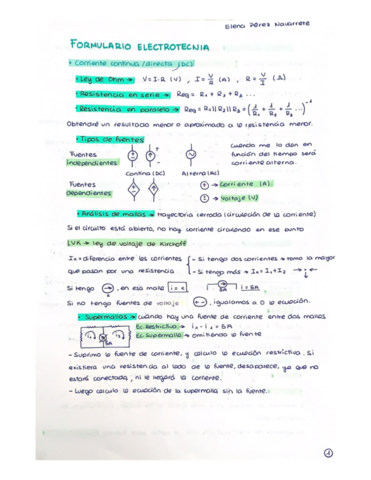 Elena Pérez Navarrete
FORMULARIO ELECTROTECNIA
• Corriente continua/directa (DC)
• Ley de Ohm → V = I·R (V) , I = V/R (A) , R = V/I (Ω)
• Resistencia en serie → Req = R1 + R2 + R3 ...
• Resistencia en paralelo → Req = R1||R2||R3 = (1/R1 + 1/R2 + 1/R3 ...)^-1
Obtendré un resultado menor o aproximado a la resistencia menor.
• Tipos de fuentes
Fuentes Independientes:
Fuentes dependientes:
Continua (DC) Alterna (AC)
cuando me la den en función del tiempo será corriente alterna.
→ Corriente (A)
→ Voltaje (V)
• Análisis de mallas → trayectoria cerrada (circulación de la corriente)
Si el circuito está abierto, no hay corriente circulando en ese punto
LVK → Ley de voltaje de Kirchoff
= diferencia entre las corrientes que pasan por una resistencia
- Si tengo dos corrientes → tomo la mayor
- Si tengo más →
Si tengo , en esa malla
Si no tengo fuentes de voltaje , igualaremos a 0 la ecuación.
• Supermallas → cuando hay una fuente de corriente entre dos mallas
Ec. Restrictiva:
Ec. Supermalla → omitiendo la fuente
- Suprimo la fuente de corriente, y calculo la ecuación restrictiva. Si
existiera una resistencia al lado de la fuente, desaparece, ya que no
estará conectada, ni le llegará la corriente.
- Luego calculo la ecuación de la supermalla sin la fuente.
1